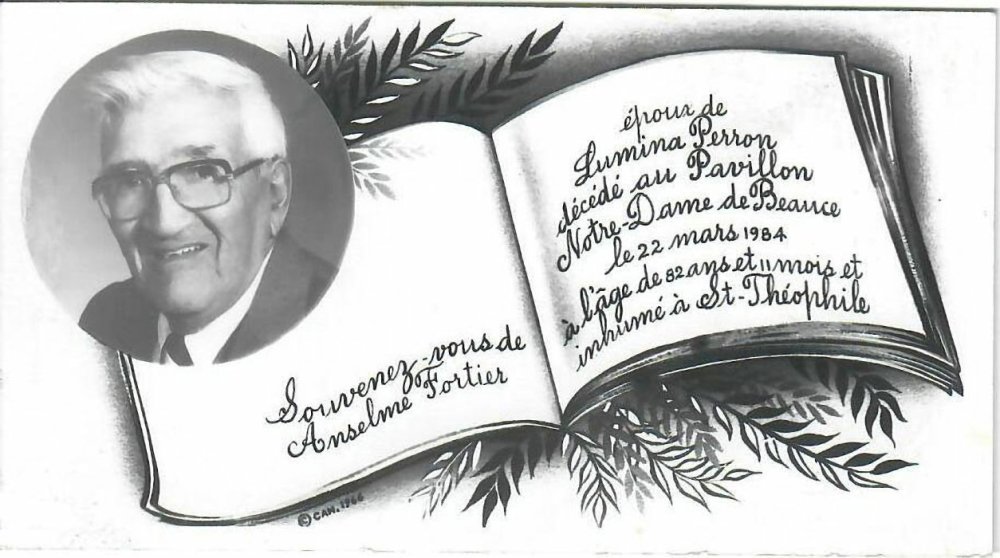 Souvenez-vous de
Anselme Fortier
époux de
Lumina Perron
décédé au Pavillon
Notre-Dame de Beauce
le 22 mars 1984
à l'âge de 82 ans et 11 mois et
inhumé à St-Théophile
© CAN. 1966